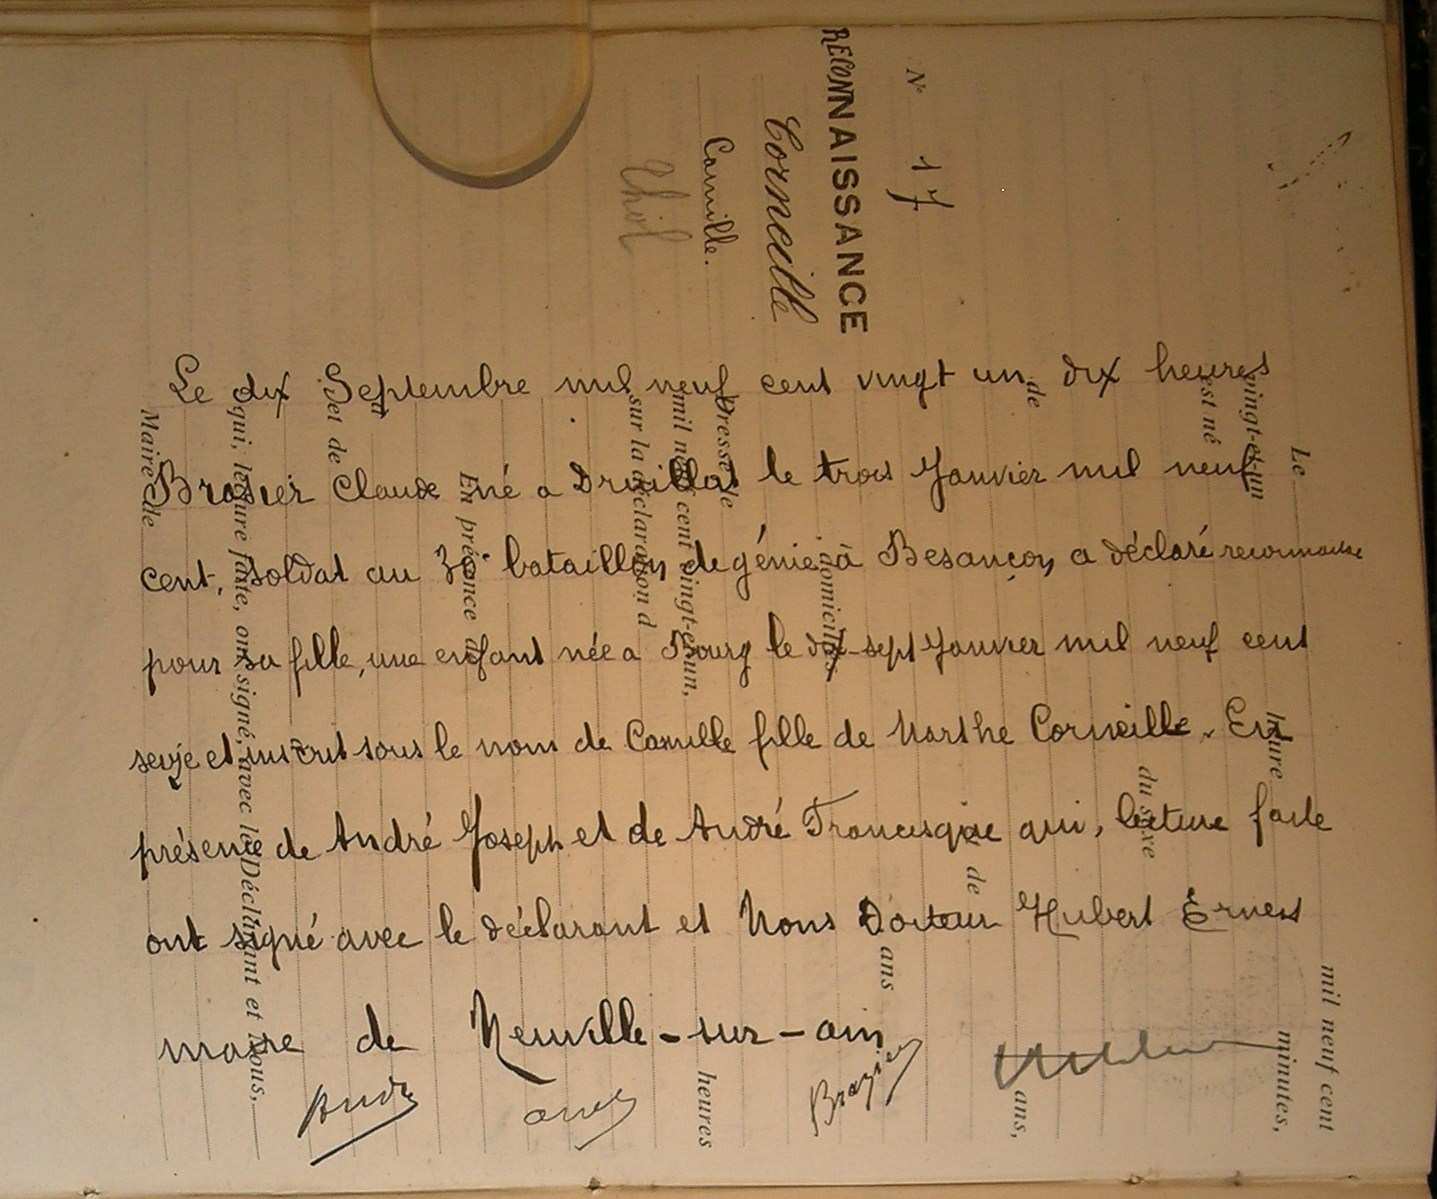 N° 17
RECONNAISSANCE
Corneille
Camille.
Thol
Le dix Septembre mil neuf cent vingt un, dix heures
Brasier Claude né a Druillat le trois Janvier mil neuf
cent, soldat au bataillon de génie à Besançon a déclaré reconnaitre
pour sa fille, une enfant née a Bourg le dix-sept Janvier mil neuf cent
seize et inscrit sous le nom de Camille fille de Marthe Corneille. En
présence de André Joseph et de André Francisque qui, lecture faite
ont signé avec le déclarant et Nous Docteur Hubert Ernest
maire de Neuville-sur-ain
André
Brazier
Le mil neuf cent
vingt-et-un heure minutes,
est né
du sexe
de ans,
de
ans
domiciliés
Dressé le
mil neuf cent vingt-et-un, heures
sur la déclaration d
En présence de
et de
qui, lecture faite, ont signé, avec le Déclarant et Nous,
Maire de